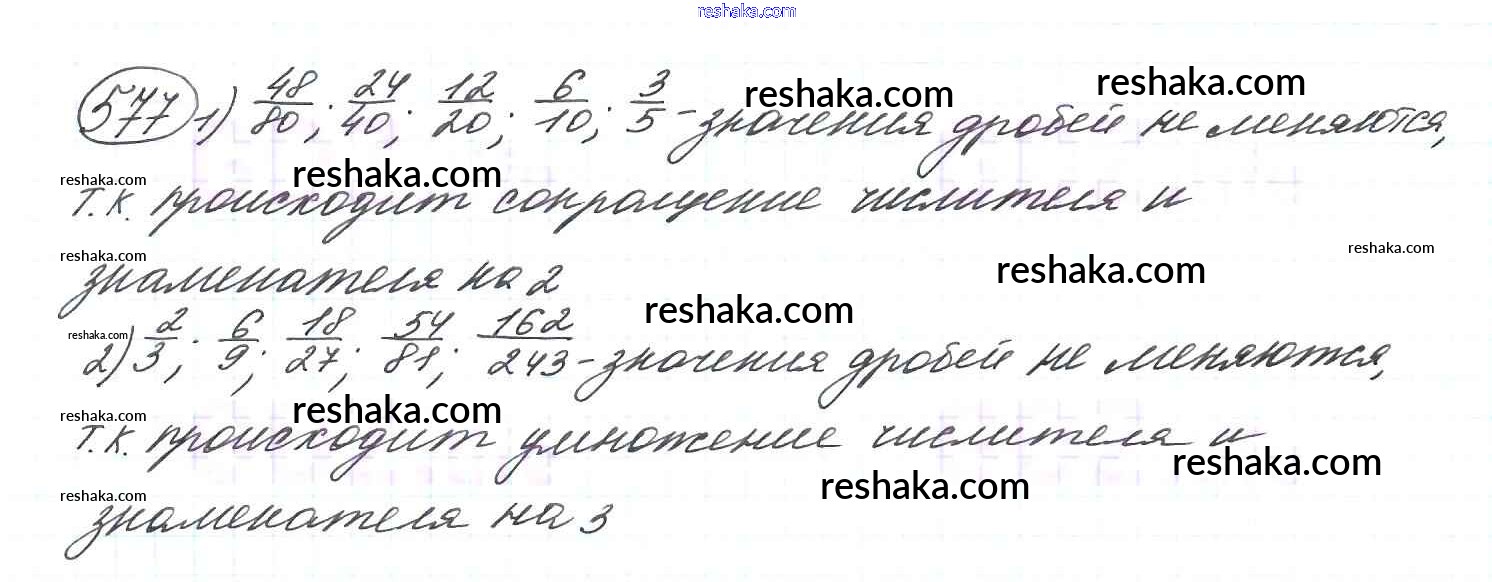 reshaka.com
577 1) 48/80; 24/40; 12/20; 6/10; 3/5 - значения дробей не меняются,
reshaka.com
reshaka.com
т.к. происходит сокращение числителя и
reshaka.com
reshaka.com
знаменателя на 2
reshaka.com
reshaka.com
reshaka.com
reshaka.com
2) 2/3; 6/9; 18/27; 54/81; 162/243 - значения дробей не меняются,
reshaka.com
reshaka.com
reshaka.com
т.к. происходит умножение числителя и
reshaka.com
reshaka.com
reshaka.com
знаменателя на 3